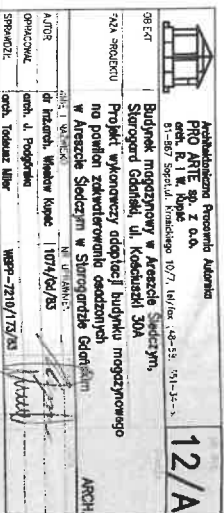 Architektoniczna Pracownia Autorska
PRO ARTE sp. z o.o.
arch. R. i W. Kupść
81-867 Sopot, ul. Kraszewskiego 10/7, tel/fax
12/A
OBIEKT
Budynek magazynowy w Areszcie Śledczym,
Starogard Gdański, ul. Kościuszki 30A
FAZA PROJEKTU
Projekt wykonawczy adaptacji budynku magazynowego
na pawilon zakwaterowania osadzonych
w Areszcie Śledczym w Starogardzie Gdańskim
ARCH
AUTOR
dr inż.arch. Wiesław Kupść
1074/Gd/83
OPRACOWAŁ
arch. J. Podgórska
SPRAWDZIŁ
arch. Tadeusz Miler
WBPP-7210/173/83